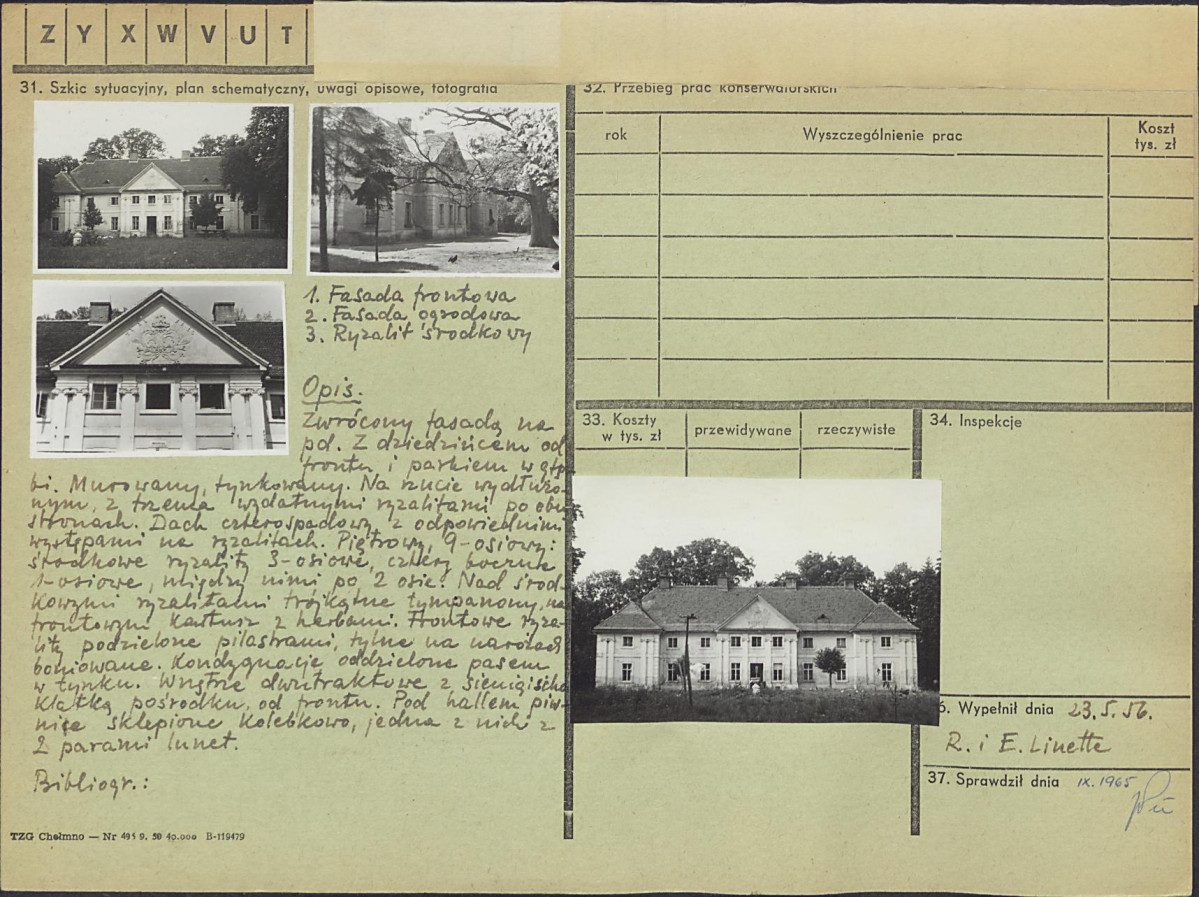 Z Y X W V U T
31. Szkic sytuacyjny, plan schematyczny, uwagi opisowe, fotografia
1. Fasada frontowa
2. Fasada ogrodowa
3. Ryzalit środkowy
Opis.
Zwrócony fasadą na
pd. Z dziedzińcem od
frontu i parkiem w głę-
bi. Murowany, tynkowany. Na rzucie wydłużo-
nym, z trzema wydatnymi ryzalitami po obu
stronach. Dach czterospadowy z odpowiednimi
występami na ryzalitach. Piętrowy, 9-osiowy:
środkowe ryzality 3-osiowe, cztery boczne
1-osiowe, między nimi po 2 osie. Nad środ-
kowymi ryzalitami trójkątne tympanony, na
frontowym kartusz z herbami. Frontowe ryza-
lity podzielone pilastrami, tylne na narożach
boniowane. Kondygnacje oddzielone pasem
w tynku. Wnętrze dwutraktowe z sienią i
klatką pośrodku, od frontu. Pod hallem piw-
nice sklepione kolebkowo, jedna z nich z
2 parami lunet.
Bibliogr.:
TZG Chełmno — Nr 495 9. 50 40.000 B-119479
32. Przebieg prac konserwatorskich
rok
Wyszczególnienie prac
Koszt
tys. zł
33. Koszty
w tys. zł
przewidywane
rzeczywiste
34. Inspekcje
6. Wypełnił dnia 23.5.56.
R. i E. Linette
37. Sprawdził dnia IX.1965